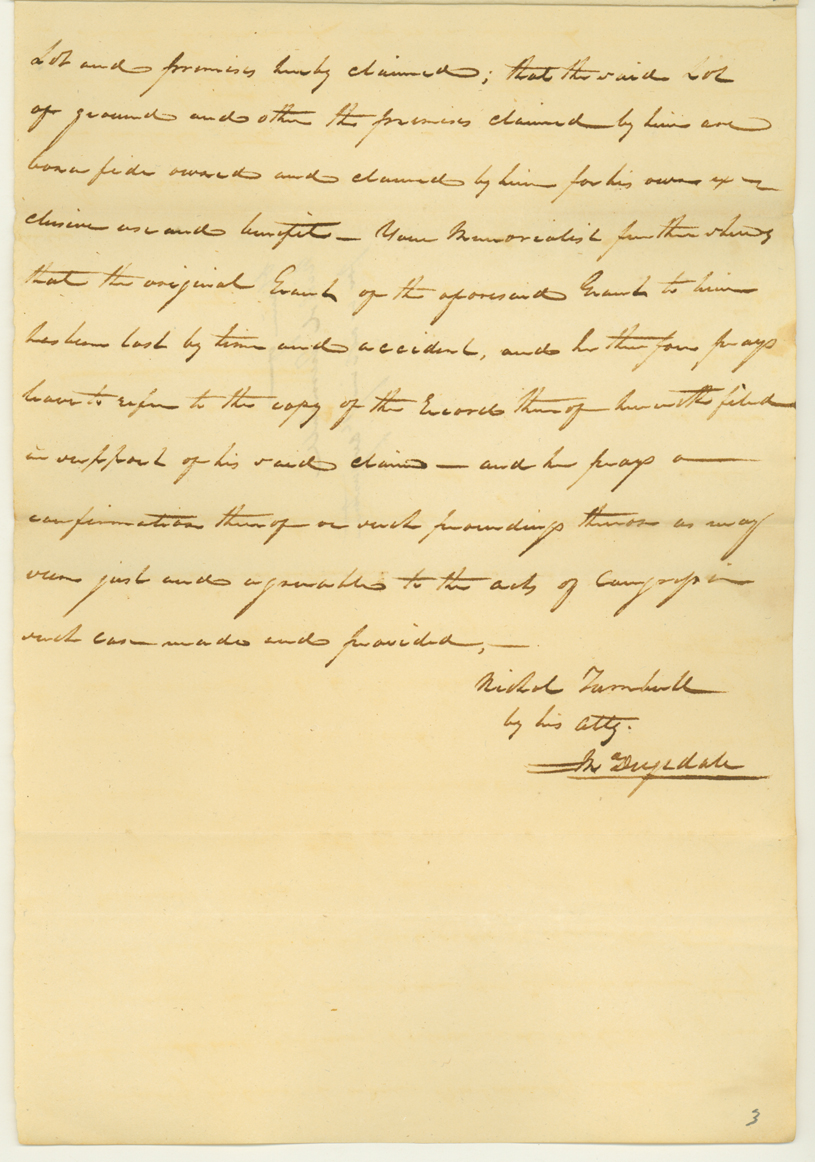 Lot and premises hereby claimed; that the said Lot
of ground and other the premises claimed by him are
bona fide owned and claimed by him for his own ex-
clusive use and benefit — Your Memorialist further shews
that the original Grant of the aforesaid Grant to him
has been lost by time and accident, and he therefore prays
leave to refer to the copy of the Record thereof herewith filed
in support of his said claim — and he prays a
confirmation thereof or such proceedings thereon as may
seem just and agreeable to the acts of Congress in
such case made and provided, —
Nichol Turnbull
by his Atty.
Drysdale
3